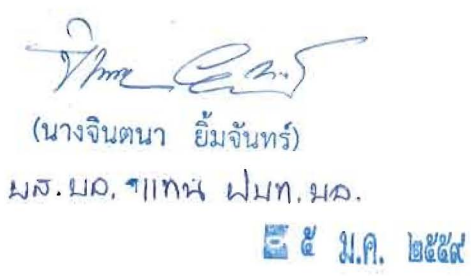 (นางจินตนา ยิ้มจันทร์)
บส.บล. แทน ฝบท.บล.
๕ ม.ค. ๒๕๕๙